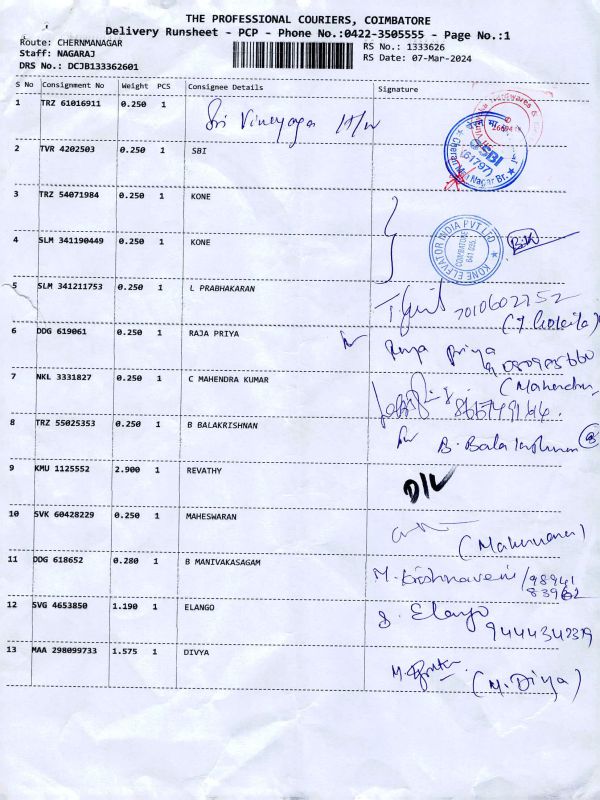 THE PROFESSIONAL COURIERS, COIMBATORE
Delivery Runsheet - PCP - Phone No.:0422-3505555 - Page No.:1
Route: CHERNMANAGAR
RS No.: 1333626
Staff: NAGARAJ
RS Date: 07-Mar-2024
DRS No.: DCJB133362601
S No Consignment No Weight PCS Consignee Details Signature
1 TRZ 61016911 0.250 1 Sri Vineyaga H/W
2 TVR 4202503 0.250 1 SBI
SBI
(61797)
Nagar Br.
3 TRZ 54071984 0.250 1 KONE
4 SLM 341190449 0.250 1 KONE
KONE ELEVATOR INDIA PVT LTD
COIMBATORE
641 035.
5 SLM 341211753 0.250 1 L PRABHAKARAN
7010602752
6 DDG 619061 0.250 1 RAJA PRIYA
Raja Priya
7 NKL 3331827 0.250 1 C MAHENDRA KUMAR
8 TRZ 55025353 0.250 1 B BALAKRISHNAN
B. Balakrishnan
9 KMU 1125552 2.900 1 REVATHY D/L
10 SVK 60428229 0.250 1 MAHESWARAN
11 DDG 618652 0.280 1 B MANIVAKASAGAM
M. Krishnaveni / 98941
83962
12 SVG 4653850 1.190 1 ELANGO
Elango
13 MAA 298099733 1.575 1 DIVYA
(M. Diya)